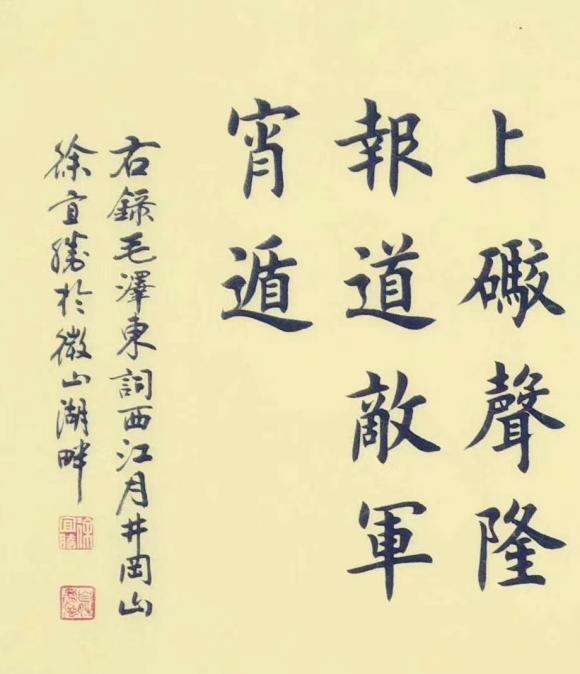 上礮聲隆
報道敵軍
宵遁
右錄毛澤東詞西江月井岡山
徐宜勝於微山湖畔
徐宜勝